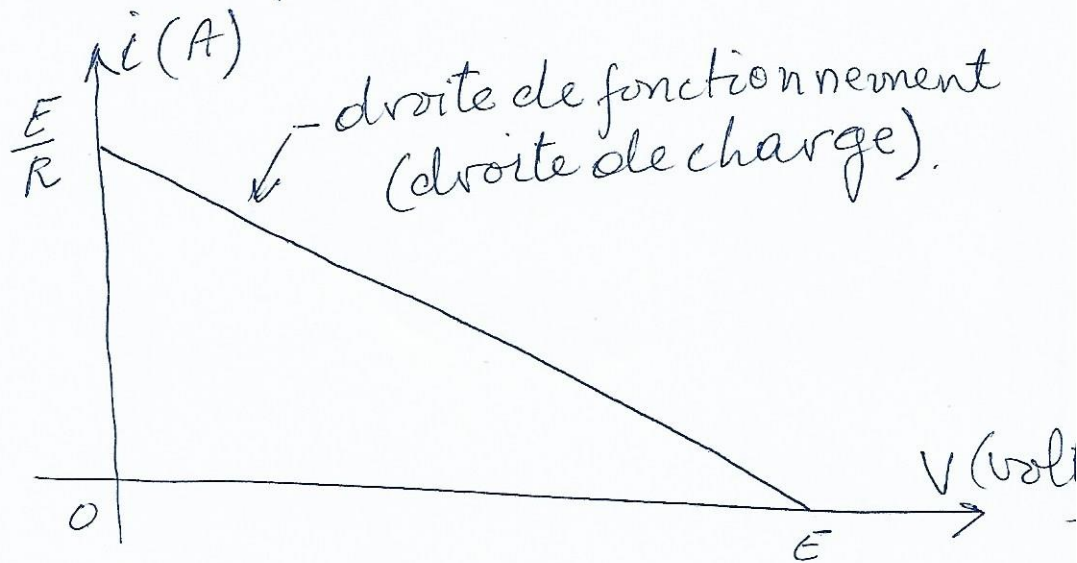 i (A)
E
R
- droite de fonctionnement
(droite de charge).
V (volt
0
E